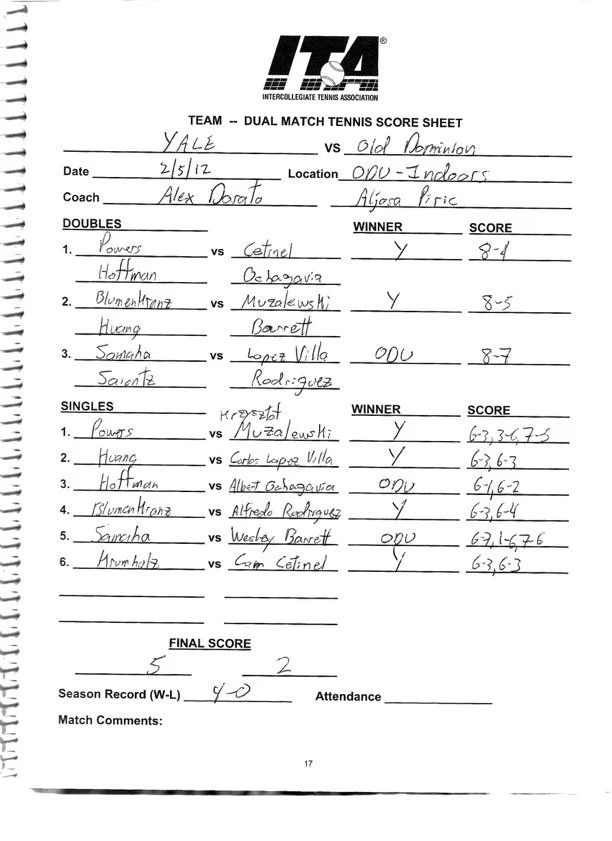 ITA®
INTERCOLLEGIATE TENNIS ASSOCIATION
TEAM -- DUAL MATCH TENNIS SCORE SHEET
YALE VS Old Dominion
Date 2/5/12 Location ODU-Indoors
Coach Alex Dorato Aljosa Piric
DOUBLES WINNER SCORE
1. Powers vs Cetinel Y 8-4
Hoffman Ochagavia
2. BlumenKranz vs Muzalewski Y 8-5
Huang Barrett
3. Samaha vs Lopez Villa ODU 8-7
Rodriguez
SINGLES WINNER SCORE
Krzysztof
1. Powers vs Muzalewski Y 6-3, 3-6, 7-5
2. Huang vs Carlos Lopez Villa Y 6-3, 6-3
3. Hoffman vs Albert Ochagavia ODU 6-1, 6-2
4. BlumenKranz vs Alfredo Rodriguez Y 6-3, 6-4
5. Samaha vs Wesley Barrett ODU 1-6, 7-6
6. Krumholz vs Cam Cetinel Y 6-3, 6-3
FINAL SCORE
5 2
Season Record (W-L) 4-0 Attendance
Match Comments:
17